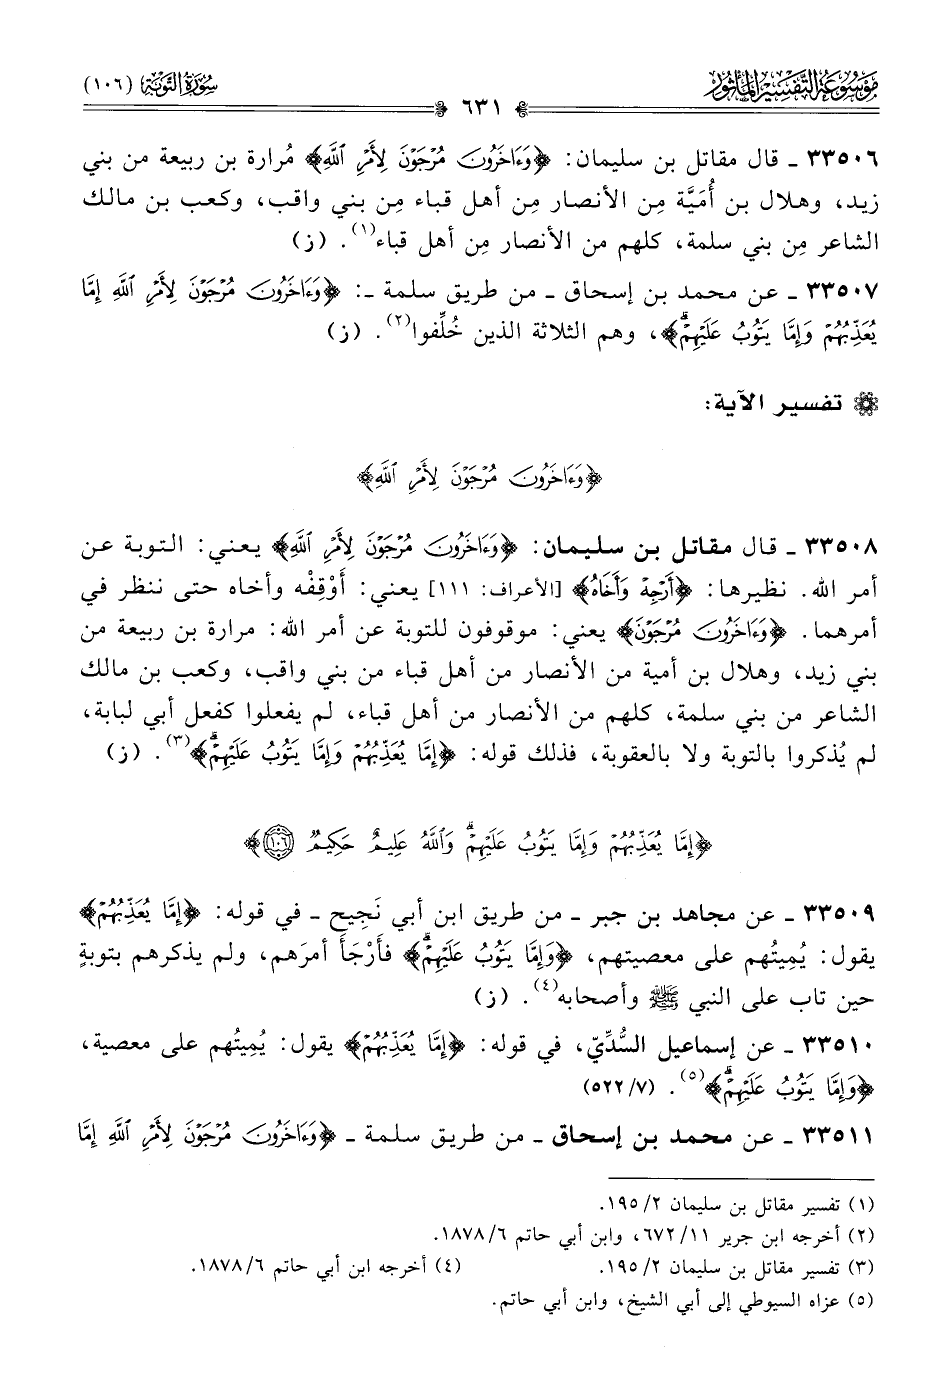 مَوْسُوعَةُ التَّفْسِيرِ المَأْثُورِ
سُورَةُ التَّوْبَةِ (١٠٦)
٦٣١
٣٣٥٠٦ ـ قال مقاتل بن سليمان: ﴿وَءَاخَرُونَ مُرْجَوْنَ لِأَمْرِ ٱللَّهِ﴾ مُرارة بن ربيعة من بني
زيد، وهلال بن أُمَيَّة مِن الأنصار مِن أهل قباء مِن بني واقب، وكعب بن مالك
الشاعر مِن بني سلمة، كلهم من الأنصار مِن أهل قباء(١). (ز)
٣٣٥٠٧ ـ عن محمد بن إسحاق ـ من طريق سلمة ـ: ﴿وَءَاخَرُونَ مُرْجَوْنَ لِأَمْرِ ٱللَّهِ إِمَّا
يُعَذِّبُهُمْ وَإِمَّا يَتُوبُ عَلَيْهِمْۗ﴾، وهم الثلاثة الذين خُلِّفوا(٢). (ز)
تفسير الآية:
﴿وَءَاخَرُونَ مُرْجَوْنَ لِأَمْرِ ٱللَّهِ﴾
٣٣٥٠٨ ـ قال مقاتل بن سليمان: ﴿وَءَاخَرُونَ مُرْجَوْنَ لِأَمْرِ ٱللَّهِ﴾ يعني: التوبة عن
أمر الله. نظيرها: ﴿أَرْجِهْ وَأَخَاهُ﴾ [الأعراف: ١١١] يعني: أَوْقِفْه وأخاه حتى ننظر في
أمرهما. ﴿وَءَاخَرُونَ مُرْجَوْنَ﴾ يعني: موقوفون للتوبة عن أمر الله: مرارة بن ربيعة من
بني زيد، وهلال بن أمية من الأنصار من أهل قباء من بني واقب، وكعب بن مالك
الشاعر من بني سلمة، كلهم من الأنصار من أهل قباء، لم يفعلوا كفعل أبي لبابة،
لم يُذكروا بالتوبة ولا بالعقوبة، فذلك قوله: ﴿إِمَّا يُعَذِّبُهُمْ وَإِمَّا يَتُوبُ عَلَيْهِمْۗ﴾(٣). (ز)
﴿إِمَّا يُعَذِّبُهُمْ وَإِمَّا يَتُوبُ عَلَيْهِمْۗ وَٱللَّهُ عَلِيمٌ حَكِيمٌ ١٠٦﴾
٣٣٥٠٩ ـ عن مجاهد بن جبر ـ من طريق ابن أبي نَجيح ـ في قوله: ﴿إِمَّا يُعَذِّبُهُمْ﴾
يقول: يُمِيتُهم على معصيتهم، ﴿وَإِمَّا يَتُوبُ عَلَيْهِمْۗ﴾ فأَرْجَأَ أمرَهم، ولم يذكرهم بتوبةٍ
حين تاب على النبي ﷺ وأصحابه(٤). (ز)
٣٣٥١٠ ـ عن إسماعيل السُّدِّيّ، في قوله: ﴿إِمَّا يُعَذِّبُهُمْ﴾ يقول: يُمِيتُهم على معصية،
﴿وَإِمَّا يَتُوبُ عَلَيْهِمْۗ﴾(٥). (٥٢٢/٧)
٣٣٥١١ ـ عن محمد بن إسحاق ـ من طريق سلمة ـ ﴿وَءَاخَرُونَ مُرْجَوْنَ لِأَمْرِ ٱللَّهِ إِمَّا
(١) تفسير مقاتل بن سليمان ١٩٥/٢.
(٢) أخرجه ابن جرير ٦٧٢/١١، وابن أبي حاتم ١٨٧٨/٦.
(٣) تفسير مقاتل بن سليمان ١٩٥/٢. (٤) أخرجه ابن أبي حاتم ١٨٧٨/٦.
(٥) عزاه السيوطي إلى أبي الشيخ، وابن أبي حاتم.